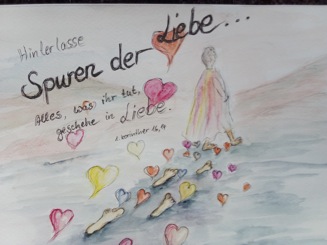 Hinterlasse
Spuren der Liebe...
Alles, was ihr tut,
geschehe in Liebe.
1. Korinther 16,14